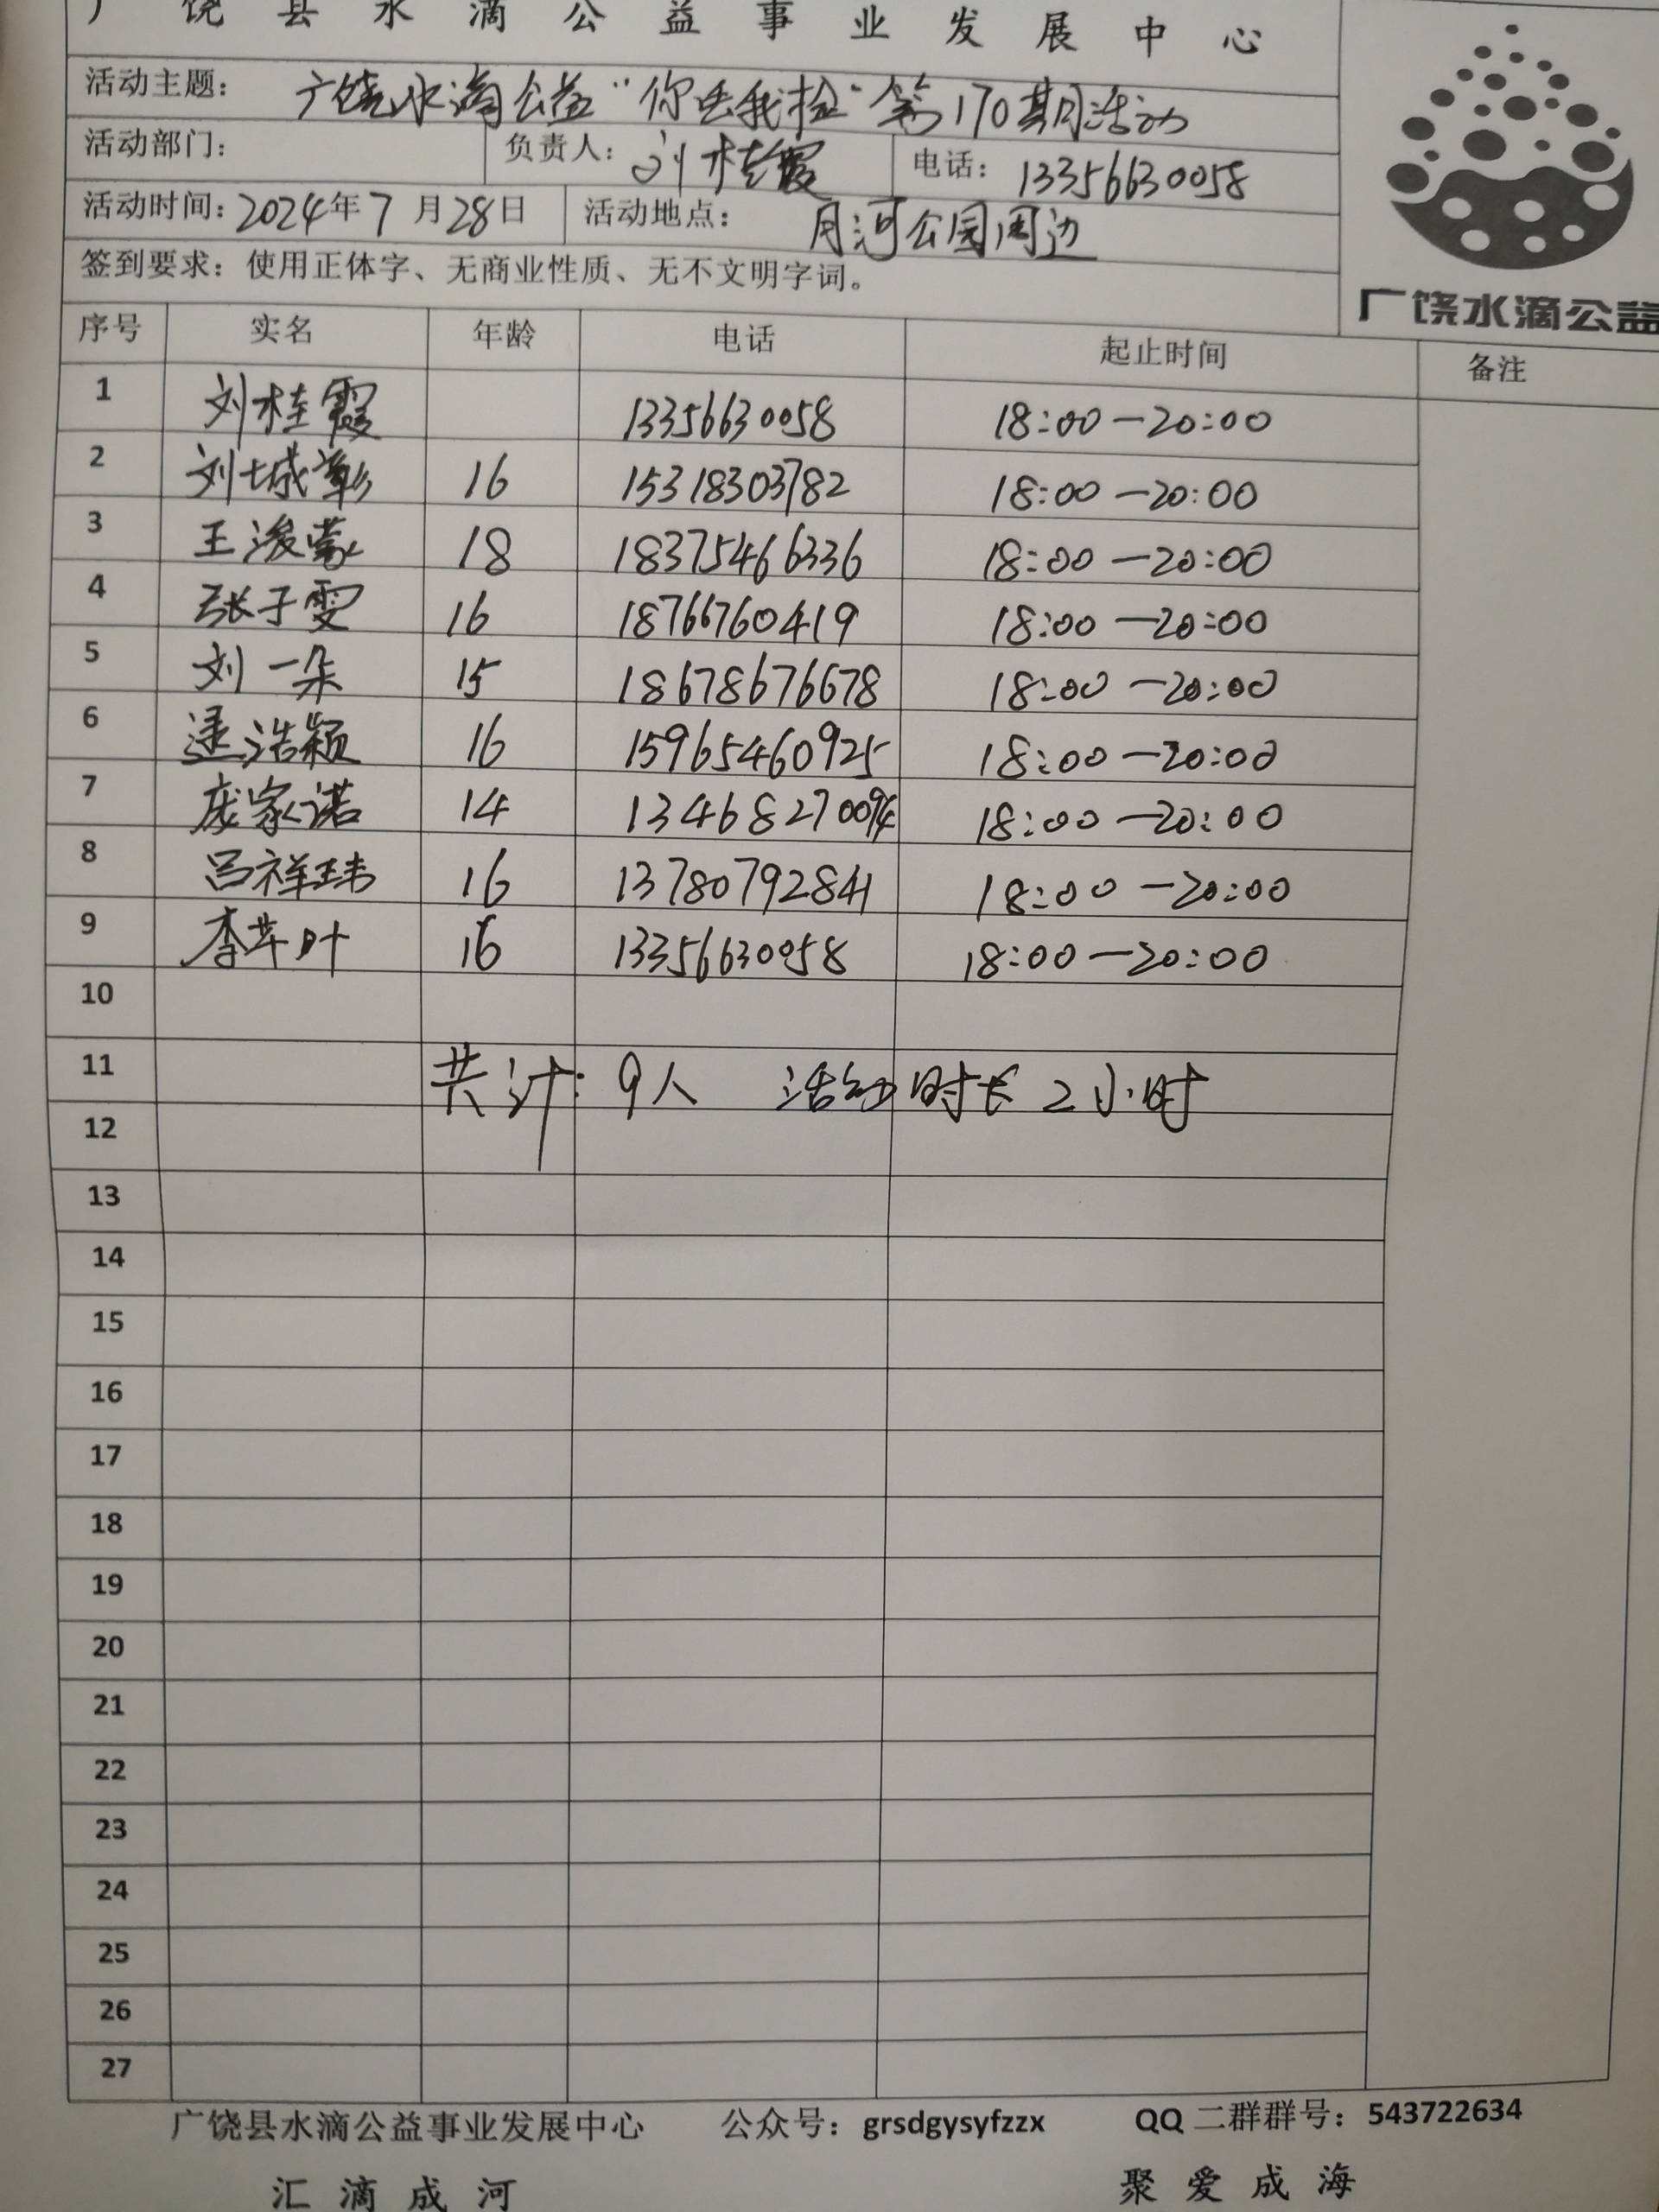 广饶县水滴公益事业发展中心
活动主题： 广饶水滴公益“你丢我捡”第170期周活动
活动部门： 负责人：刘桂霞 电话：13356630058
活动时间：2024年7月28日 活动地点： 月河公园周边
签到要求：使用正体字、无商业性质、无不文明字词。
广饶水滴公益
序号 实名 年龄 电话 起止时间 备注
1 刘桂霞 13356630058 18:00—20:00
2 刘城 16 15318303782 18:00—20:00
3 王浚蒙 18 18375466336 18:00—20:00
4 张子雯 16 18766760419 18:00—20:00
5 刘一朵 15 18678676678 18:00—20:00
6 逯浩颖 16 15965460925 18:00—20:00
7 庞家诺 14 18:00—20:00
8 吕祥玮 16 13780792841 18:00—20:00
9 李芊叶 16 13356630058 18:00—20:00
10
11 共计：9人 活动时长2小时
12
13
14
15
16
17
18
19
20
21
22
23
24
25
26
27
广饶县水滴公益事业发展中心 公众号：grsdgysyfzzx QQ二群群号：543722634
汇滴成河 聚爱成海